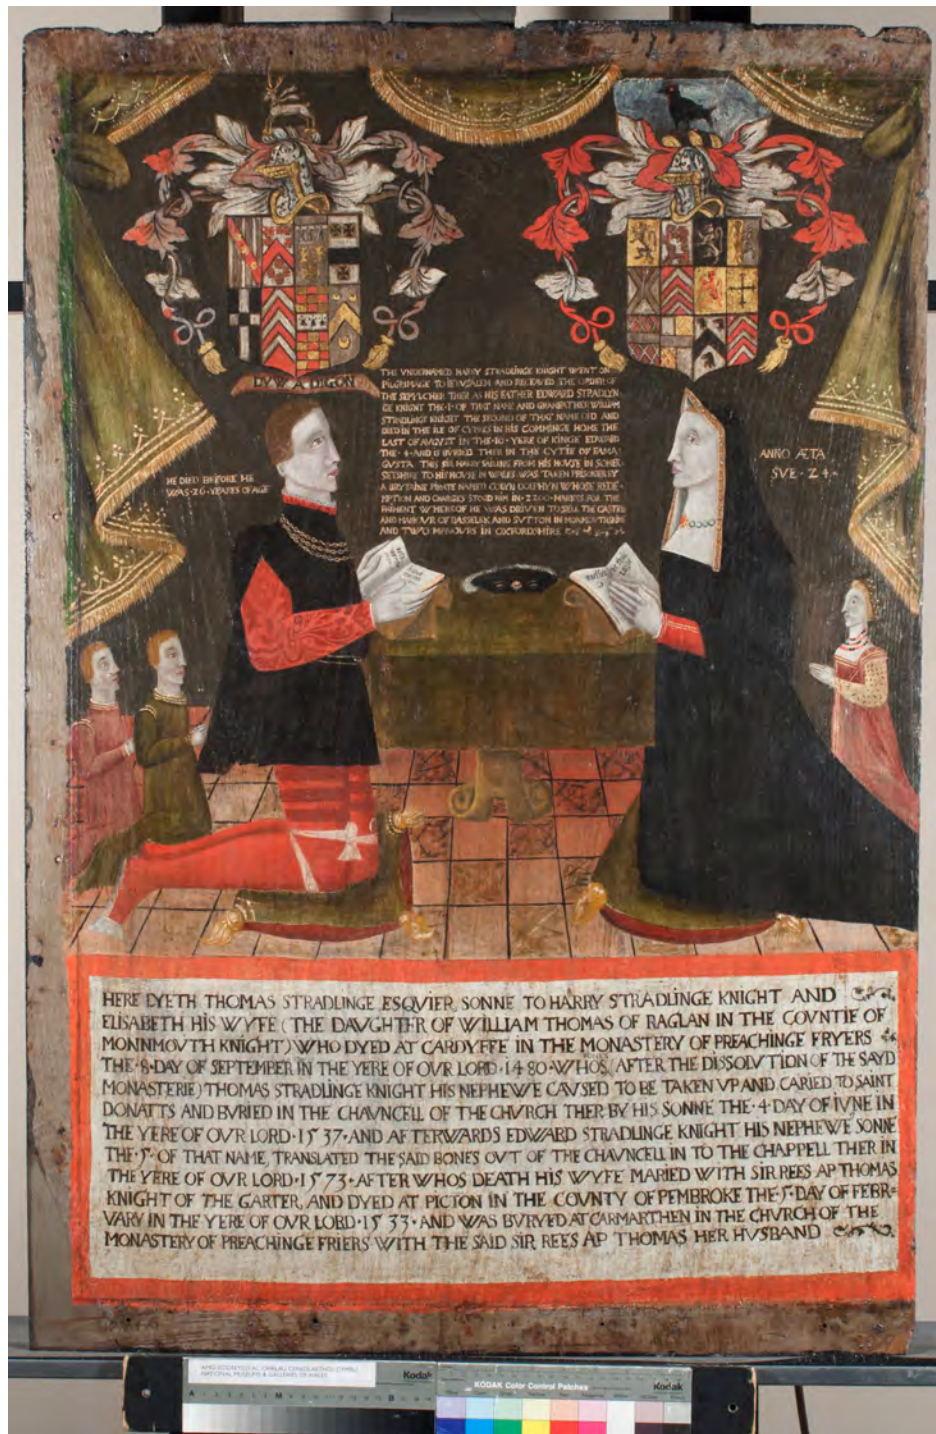 DVW A DIGON
THE VNDERNAMED HARRY STRADLINGE KNIGHT WENT ON
PILGRIMAGE TO IERVSALEM AND RECEAVED THE ORDER OF
THE SEPVLCHER THER AS HIS FATHER EDWARD STRADLYN
GE KNIGHT THE·I·OF THAT NAME AND GRANFATHER WILLIAM
STRADLINGE KNIGHT THE SECOND OF THAT NAME DID AND
DIED IN THE ILE OF CYPRES IN HIS COMMINGE HOME THE
LAST OF AVGVST IN THE·16·YERE OF KINGE EDWARD
THE·4·AND IS BVRIED THER IN THE CYTTE OF FAMA
GVSTA THIS SIR HARRY SAILING FROM HIS HOVSE IN SOMER
SETSHIRE TO HIS HOVSE IN WALES WAS TAKEN PRISONER BY
A BRYTAINE PIRATE NAMED COLYN DOLPHYN WHOSE REDE
MPTION AND CHARGES STOOD HIM IN·2200·MARKES FOR THE
PAIMENT WHEREOF HE WAS DRIVEN TO SELL THE CASTLE
AND MANOVR OF BASSELEK AND SVTTON IN MONMOVTHSHIRE
AND TWO MANOVRS IN OXFORDSHIRE
HE DIED BEFORE HE
WAS·26·YEARES OF AGE
ANNO ÆTA
SVE·24·
HERE LYETH THOMAS STRADLINGE ESQVIER SONNE TO HARRY STRADLINGE KNIGHT AND
ELISABETH HIS WYFE (THE DAVGHTER OF WILLIAM THOMAS OF RAGLAN IN THE COVNTIE OF
MONNMOVTH KNIGHT) WHO DYED AT CARDYFFE IN THE MONASTERY OF PREACHINGE FRYERS
THE·8·DAY OF SEPTEMBER IN THE YERE OF OVR LORD·1480·WHOS (AFTER THE DISSOLVTION OF THE SAYD
MONASTERIE) THOMAS STRADLINGE KNIGHT HIS NEPHEWE CAVSED TO BE TAKEN VP AND CARIED TO SAINT
DONATTS AND BVRIED IN THE CHAVNCELL OF THE CHVRCH THER BY HIS SONNE THE·4·DAY OF IVNE IN
THE YERE OF OVR LORD·1537·AND AFTERWARDS EDWARD STRADLINGE KNIGHT HIS NEPHEWE SONNE
THE·5·OF THAT NAME, TRANSLATED THE SAID BONES OVT OF THE CHAVNCELL IN TO THE CHAPPELL THER IN
THE YERE OF OVR LORD·1573·AFTER WHOS DEATH HIS WYFE MARIED WITH SIR REES AP THOMAS
KNIGHT OF THE GARTER, AND DYED AT PICTON IN THE COVNTY OF PEMBROKE THE·5·DAY OF FEBR=
VARY IN THE YERE OF OVR LORD·1533·AND WAS BVRYED AT CARMARTHEN IN THE CHVRCH OF THE
MONASTERY OF PREACHINGE FRIERS WITH THE SAID SIR REES AP THOMAS HER HVSBAND
NATIONAL MUSEUMS & GALLERIES OF WALES
Kodak
KODAK Color Control Patches
Kodak